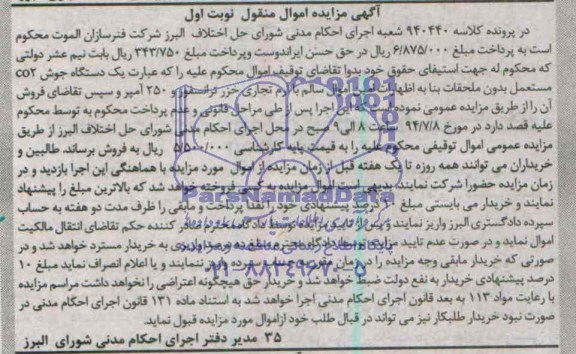 آگهی مزایده اموال منقول نوبت اول
در پرونده کلاسه ۹۴۰۴۴۰ شعبه اجرای احکام مدنی شورای حل اختلاف البرز شرکت فنرسازان الموت محکوم
است به پرداخت مبلغ ۶/۸۷۵/۰۰۰ ریال در حق حسن ایراندوست وپرداخت مبلغ ۳۴۳/۷۵۰ ریال بابت نیم عشر دولتی
که محکوم له جهت استیفای حقوق خود بدوا تقاضای توقیف اموال محکوم علیه را که عبارت یک دستگاه جوش co2
مستعمل بدون ملحقات بنا به اظهارات سالم با آرم تجاری خزر ترانسفور و ۲۵۰ آمپر و سپس تقاضای فروش
آن را از طریق مزایده عمومی نموده این اجرا پس از طی مراحل قانونی و عدم پرداخت محکوم به توسط محکوم
علیه قصد دارد در مورخ ۹۴/۷/۸ ساعت ۸ الی ۹ صبح در محل اجرای احکام مدنی شورای حل اختلاف البرز از طریق
مزایده عمومی اموال توقیفی محکوم علیه را به قیمت پایه کارشناسی ۵/۵۰۰/۰۰۰ ریال به فروش برساند. طالبین و
خریداران می توانند همه روزه تا یک هفته قبل از زمان مزایده از اموال مورد مزایده با هماهنگی این اجرا بازدید و در
زمان مزایده حضورا شرکت نمایند. بدیهی است اموال مزایده به کسی فروخته خواهد شد که بالاترین مبلغ را پیشنهاد
نمایند و خریدار می بایستی مبلغ ۱۰ درصد پیشنهادی خود را نقدا پرداخت و مابقی را ظرف مدت دو هفته به حساب
سپرده دادگستری البرز واریز نمایند و پس از تایید مزایده توسط دادگاه محترم صادر کننده حکم تقاضای انتقال مالکیت
اموال نماید و در صورت عدم تایید مزایده توسط دادگاه محترم مبلغ ده درصد واریزی به خریدار مسترد خواهد شد و در
صورتی که خریدار مابقی وجه مزایده را در زمان مقرر به حساب سپرده واریز ننمایند و یا اعلام انصراف نماید مبلغ ۱۰
درصد پیشنهادی خریدار به نفع دولت ضبط خواهد شد و خریدار حق هیچگونه اعتراضی را نخواهد داشت مراسم مزایده
با رعایت مواد ۱۱۳ به بعد قانون اجرای احکام مدنی اجرا خواهد شد به استناد ماده ۱۳۱ قانون اجرای احکام مدنی در
صورت نبود خریدار طلبکار نیز می تواند در قبال طلب خود ازاموال مورد مزایده قبول نماید.
۳۵ مدیر دفتر اجرای احکام مدنی شورای البرز
ParsNamadData
۰۲۱-۸۸۳۴۹۶۷۰-۵